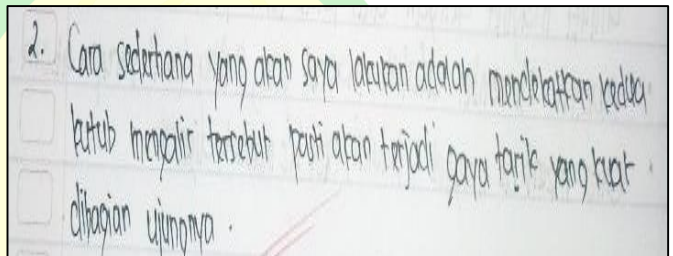 2. Cara sederhana yang akan saya lakukan adalah mendekatkan kedua
kutub mengalir tersebut pasti akan terjadi gaya tarik yang kuat.
dibagian ujungnya.